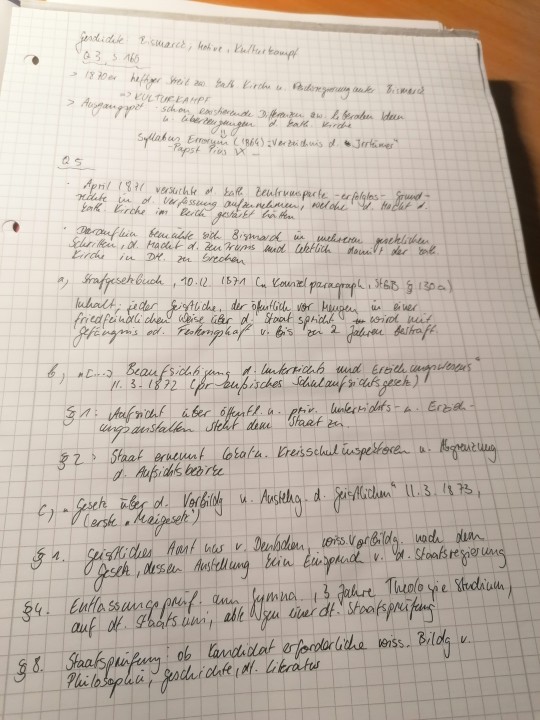 Geschichte Bismarck, Kulturkampf
Q 3, S. 160
> 1870er heftiger Streit zw. kath. Kirche u. Reichsregierung unter Bismarck
=> KULTURKAMPF
> schon existierende Differenzen zw. liberalen Ideen
u. Überzeugungen d. kath. Kirche
Syllabus Errorum (1864) = "Verzeichnis d. Irrtümer"
Papst Pius IX
Q 5
· April 1871 versuchte d. kath Zentrumspartei -erfolglos- Grund-
rechte in d. Verfassung aufzunehmen, welche d. Macht d.
kath. Kirche im Reich gestärkt hätten
· Daraufhin bemühte sich Bismarck in mehreren gesetzlichen
Schritten, d. Macht d. Zentrums und letztlich damit der kath.
Kirche in Dtl. zu brechen
a) Strafgesetzbuch, 10.12.1871 (" Kanzelparagraph, StGB § 130a)
Inhalt: jeder Geistliche, der öffentlich vor Mengen in einer
friedfeindlichen Weise über d. Staat spricht wird mit
Gefängnis od. Festungshaft v. bis zu 2 Jahren bestraft
b) "[...] Beaufsichtigung d. Unterrichts und Erziehungswesens"
11.3.1872 (preußisches Schulaufsichtsgesetz)
§ 1: Aufsicht über öffentl. u. priv. Unterrichts- u. Erzieh-
ungsanstalten steht dem Staat zu
§ 2: Staat ernennt lokal u. Kreisschulinspektoren u. Abgrenzung
d. Aufsichtsbezirke
c) "Gesetz über d. Vorbildg u. Anstellg. d. Geistlichen" 11.3.1873,
(erste "Maigesetz")
§ 1. Geistliches Amt nur v. Deutschen, wiss. Vorbildg. nach dem
Gesetz, dessen Anstellung kein Einspruch v. d. Staatsregierung
§ 4. Entlassungsprüf. am Gymna., 3 Jahre Theologie Studium,
auf dt. Staatsuni, ablegen einer dt. Staatsprüfung
§ 8. Staatsprüfung: ob Kandidat erforderliche wiss. Bildg v.
Philosophie, Geschichte, dt. Literatur